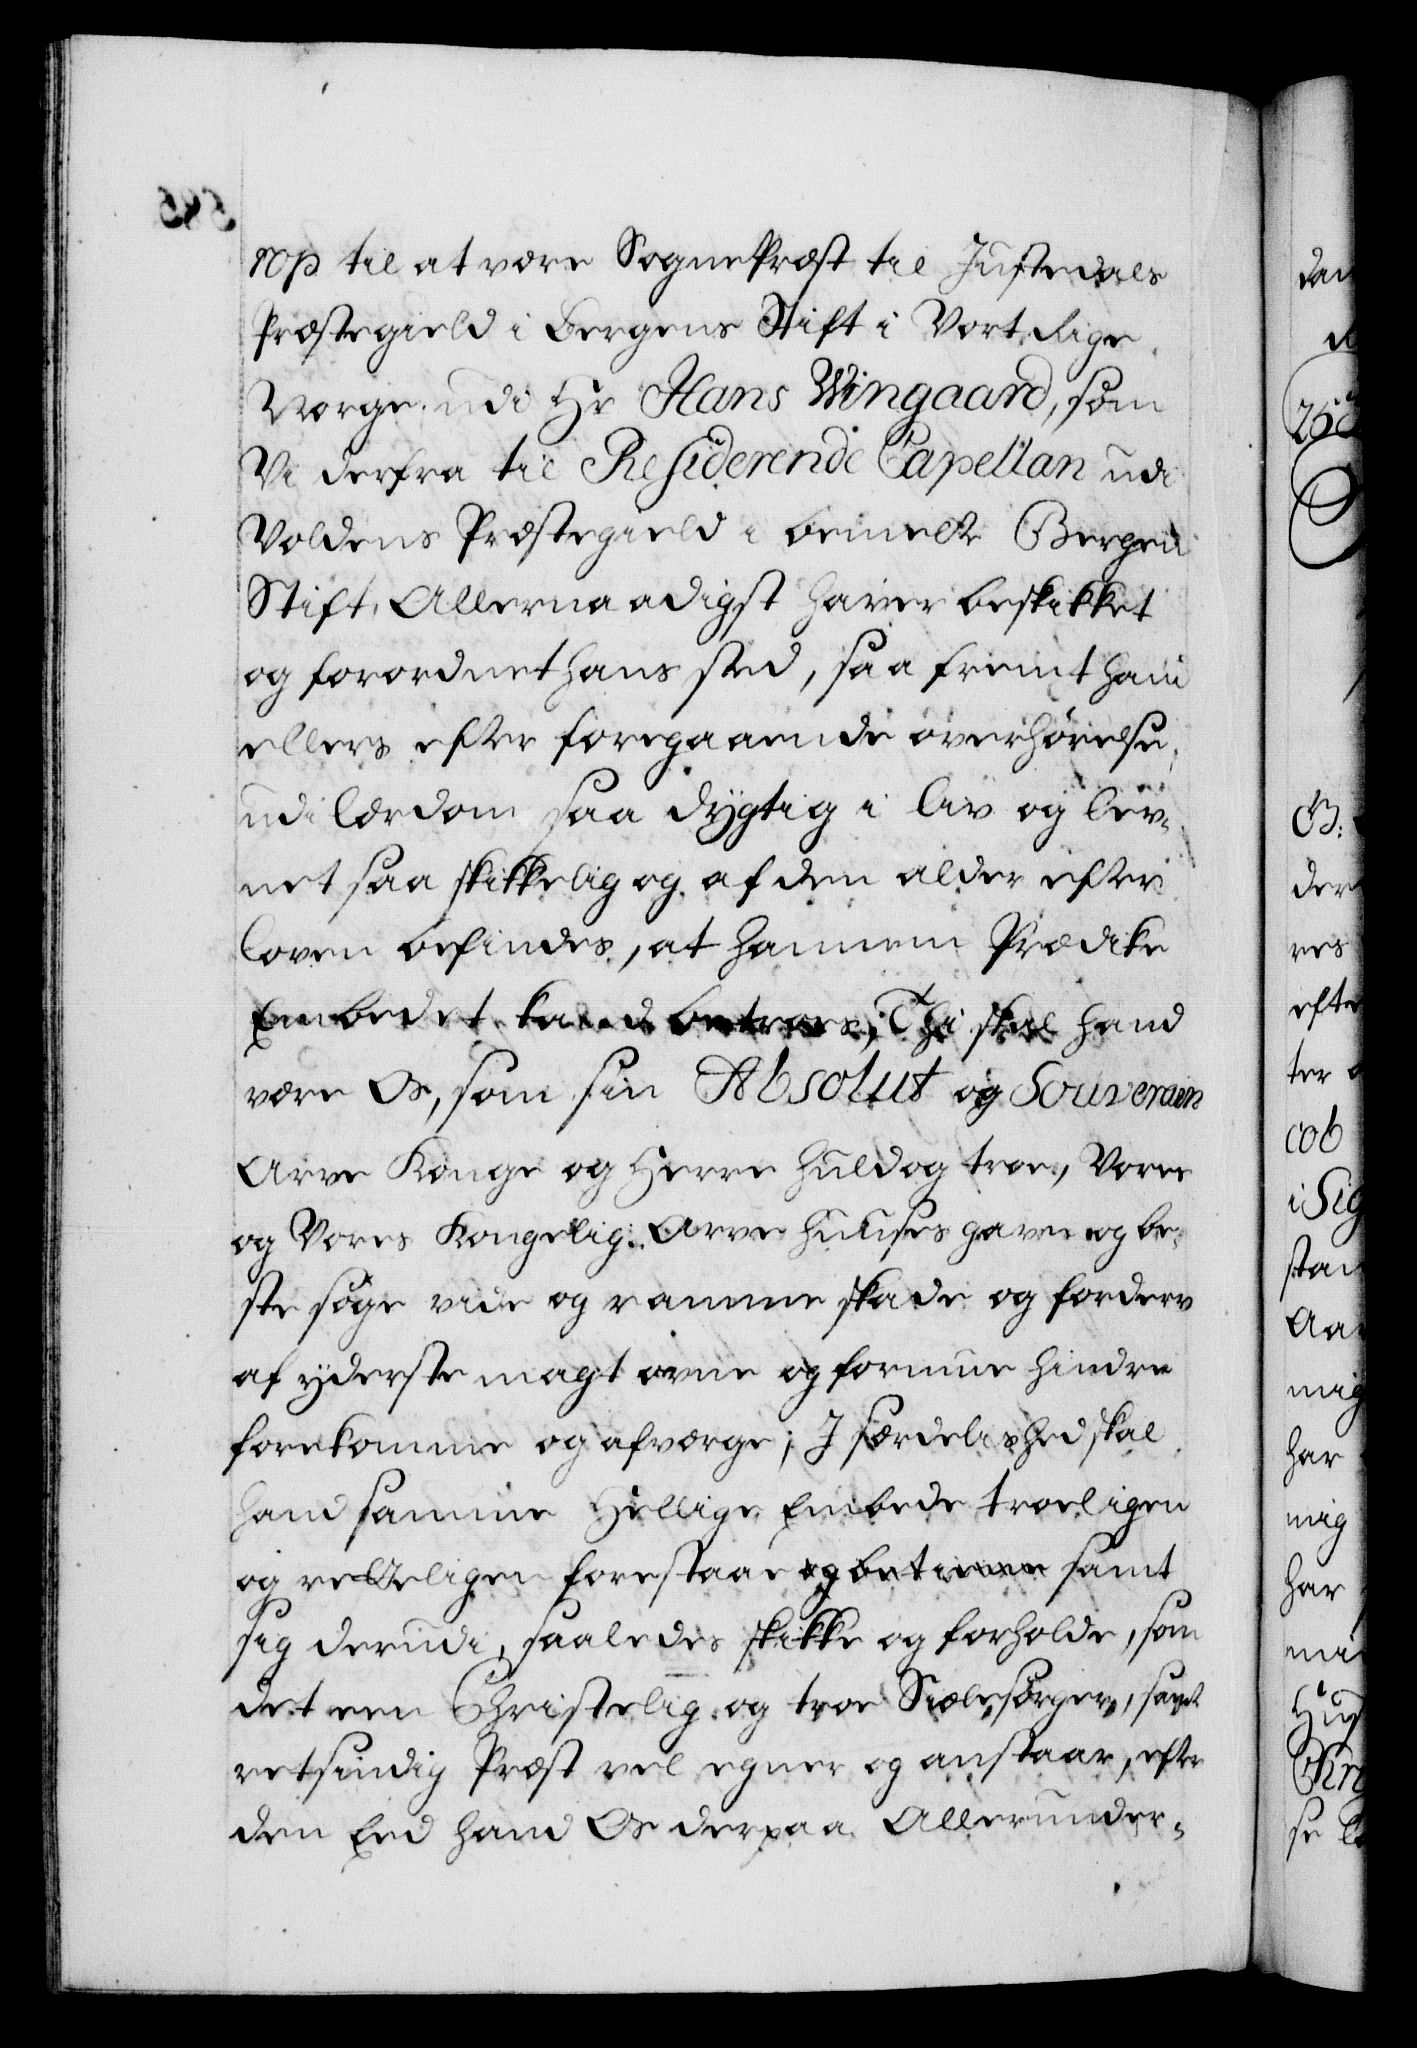 rop til at være SognePræst til Justedals
Præstegield i Bergens Stift i Vort Rige
Norge. udi Hr Hans Wingaard, som
Vi derfra til Residerende Capellan udi
Voldens Præstegield i bemelte Bergens
Stift, Allernaadigst haver beskikket
og forordnet hans sted, saa fremt hand
ellers efter foregaaende overhørelse,
udi lærdom saa dygtig i liv og lev-
net saa skikkelig og af den alder efter
loven befindes, at hannem Prædike
Embedet kand betroes; Thi skal hand
være Os, som sin Absolut og Souverain
Arve Konge og Herre huld og troe, Vores
og Vores Kongelig: Arve Huuses gavn og be-
ste søge vide og ramme skade og forderv
af yderste magt evne og formue hindre
forekomme og afværge; I særdelished skal
hand samme Hellige Embede troeligen
og retteligen forestaae og betiene samt
sig derudi, saaledes skikke og forholde, som
det een Christelig og troe Siælesørger, samt
retsindig Præst vel egner og anstaar, efter
den Eed hand Os derpaa Allerunder-